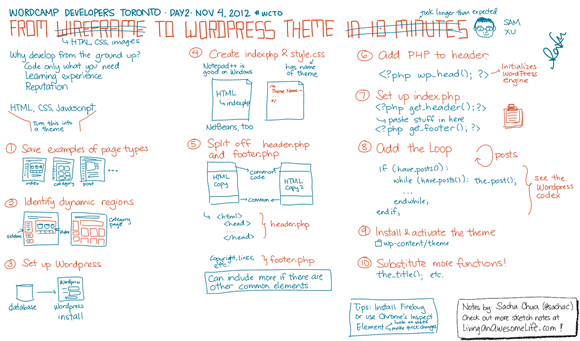 WORDCAMP DEVELOPERS TORONTO - DAY2 - NOV 4, 2012 #WCTO
took longer than expected
FROM WIREFRAME TO WORDPRESS THEME IN 10 MINUTES
HTML, CSS, images
SAM XU
Why develop from the ground up?
Code only what you need
Learning experience
Reputation
HTML, CSS, Javascript
Turn this into
a theme
1 Save examples of page types
index
category
post
...
2 Identify dynamic regions
sidebar
index
category
page
3 Set up Wordpress
database
Wordpress
Wordpress
install
4 Create index.php & style.css
Notepad++ is
good on Windows
has
name
of theme
HTML
index.php
/*
Theme Name
*/
NetBeans, too
5 Split off header.php
and footer.php
HTML
copy
common
code
HTML
copy 2
common
<html>
<head>
...
</head>
header.php
Copyright, lines,
etc.
footer.php
Can include more if there are
other common elements.
6 Add PHP to header:
<?php wp_head(); ?>
Initializes
WordPress
engine
7 Set up index.php
<?php get_header(); ?>
paste stuff in here
<?php get_footer(); ?>
8 Add the Loop
posts
if (have_posts()):
while (have_posts()): the_post();
...
endwhile;
endif;
see the
Wordpress
codex
9 Install & activate the theme
wp-content/theme
10 Substitute more functions!
the_title(); etc.
Tips: Install Firebug
or use Chrome's Inspect
Element
look up styles
make quick changes
Notes by Sacha Chua (@sachac)
Check out more sketch notes at
LivingAnAwesomeLife.com!